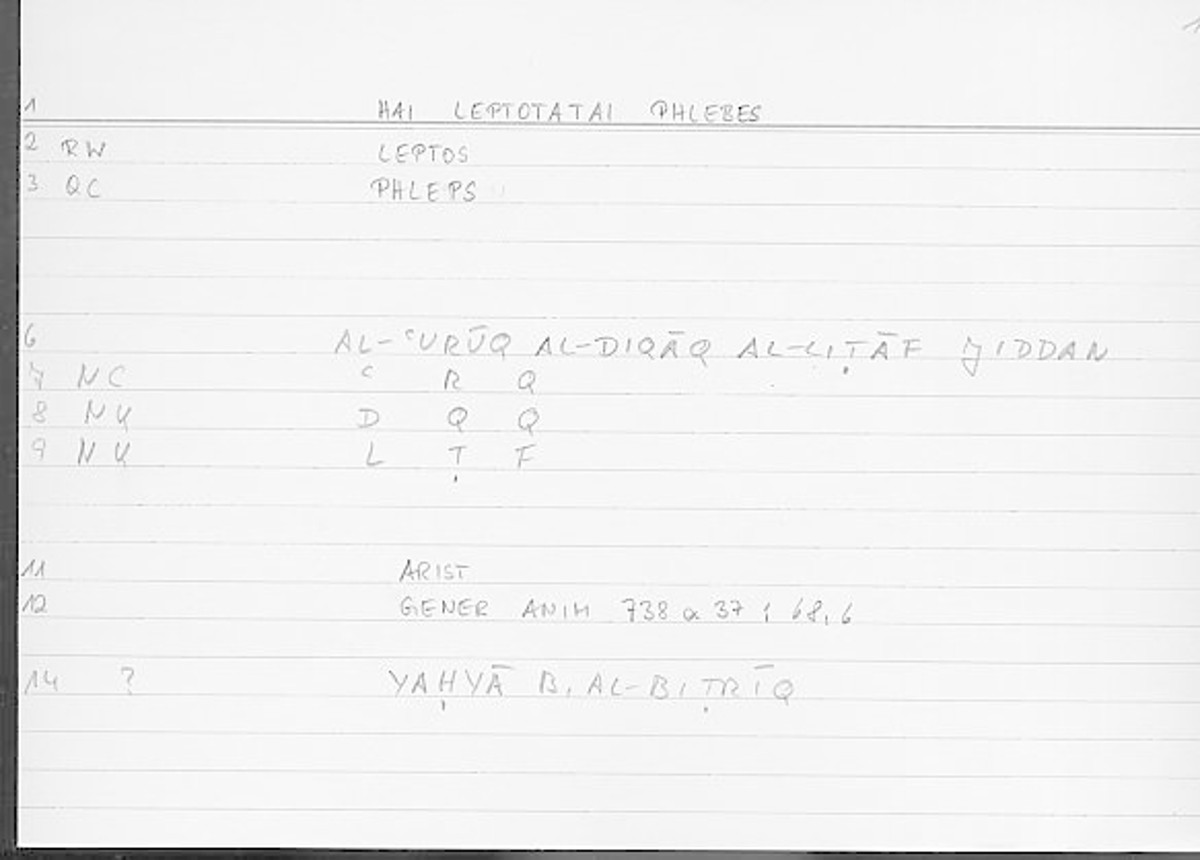 1 HAI LEPTOTATAI PHLEBES
2 RW LEPTOS
3 QC PHLEPS
6 AL-ʿURŪQ AL-DIQĀQ AL-LIṬĀF JIDDAN
7 NC ʿ R Q
8 NK D Q Q
9 NK L Ṭ F
11 ARIST
12 GENER ANIM 738 a 37 ; 68,6
14 ? YAḤYĀ B. AL-BIṬRĪQ